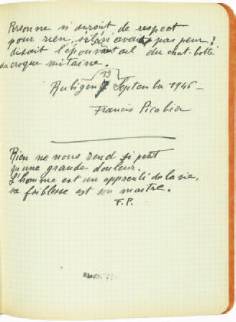 Personne n'aurait de respect
pour rien, si l'on avait pas peur?
disait l'épouvantail du chat-botté
croque mitaine.
13
Rubigen Septembre 1946 —
Francis Picabia
Rien ne nous rend si petit
qu'une grande douleur.
L'homme est un apprenti de la vie,
sa faiblesse est son maître.
F.P.